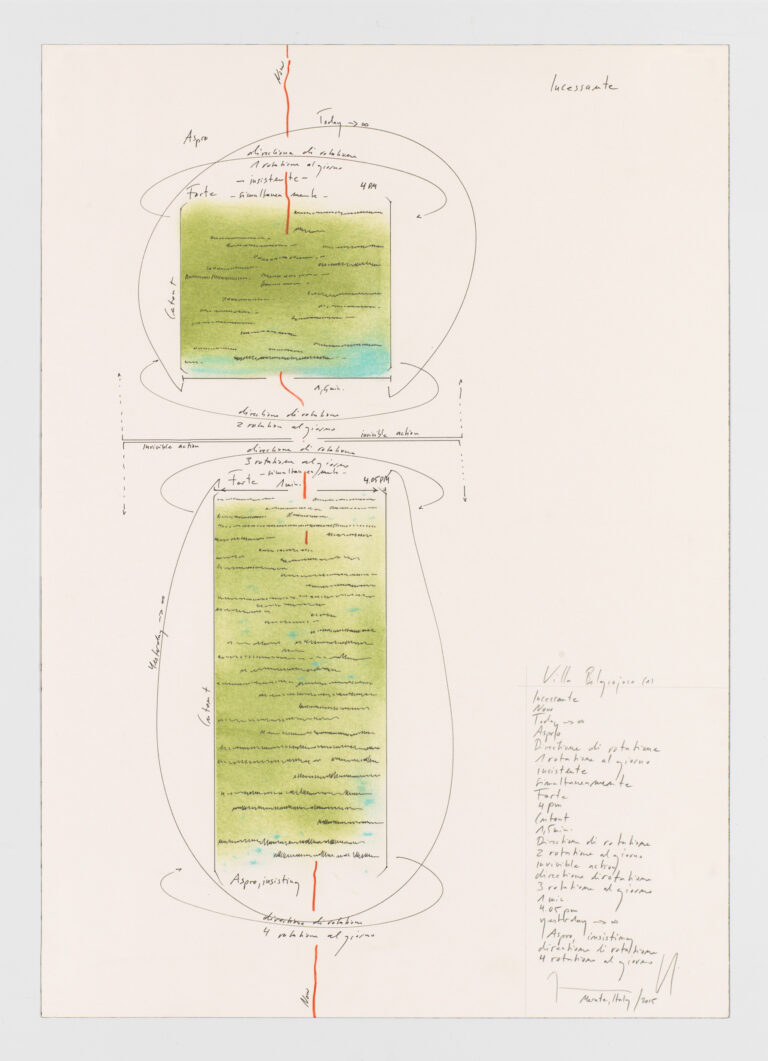 Incessante
Now
Today → ∞
Aspro
directione di rotatione
1 rotatione al giorno
- insistente -
4 PM
Forte - simultaneamente -
Cantant
1,5 min.
directione di rotatione
2 rotation al giorno
invisible action
invisible action
directione di rotatione
3 rotatione al giorno
- simultaneamente -
Forte 1 min. 4.05 PM
Yesterday → ∞
Aspro, insisting
directione di rotatione
4 rotatione al giorno
Now
Villa
Incessante
Now
Today → ∞
Aspro
Directione di rotatione
1 rotatione al giorno
insistente
simultaneamente
Forte
4 pm
1,5 min.
Directione di rotatione
2 rotatione al giorno
invisible action
directione di rotatione
3 rotatione al giorno
1 min
4.05 pm
yesterday → ∞
Aspro, insisting
directione di rotatione
4 rotatione al giorno
Italy / 2015